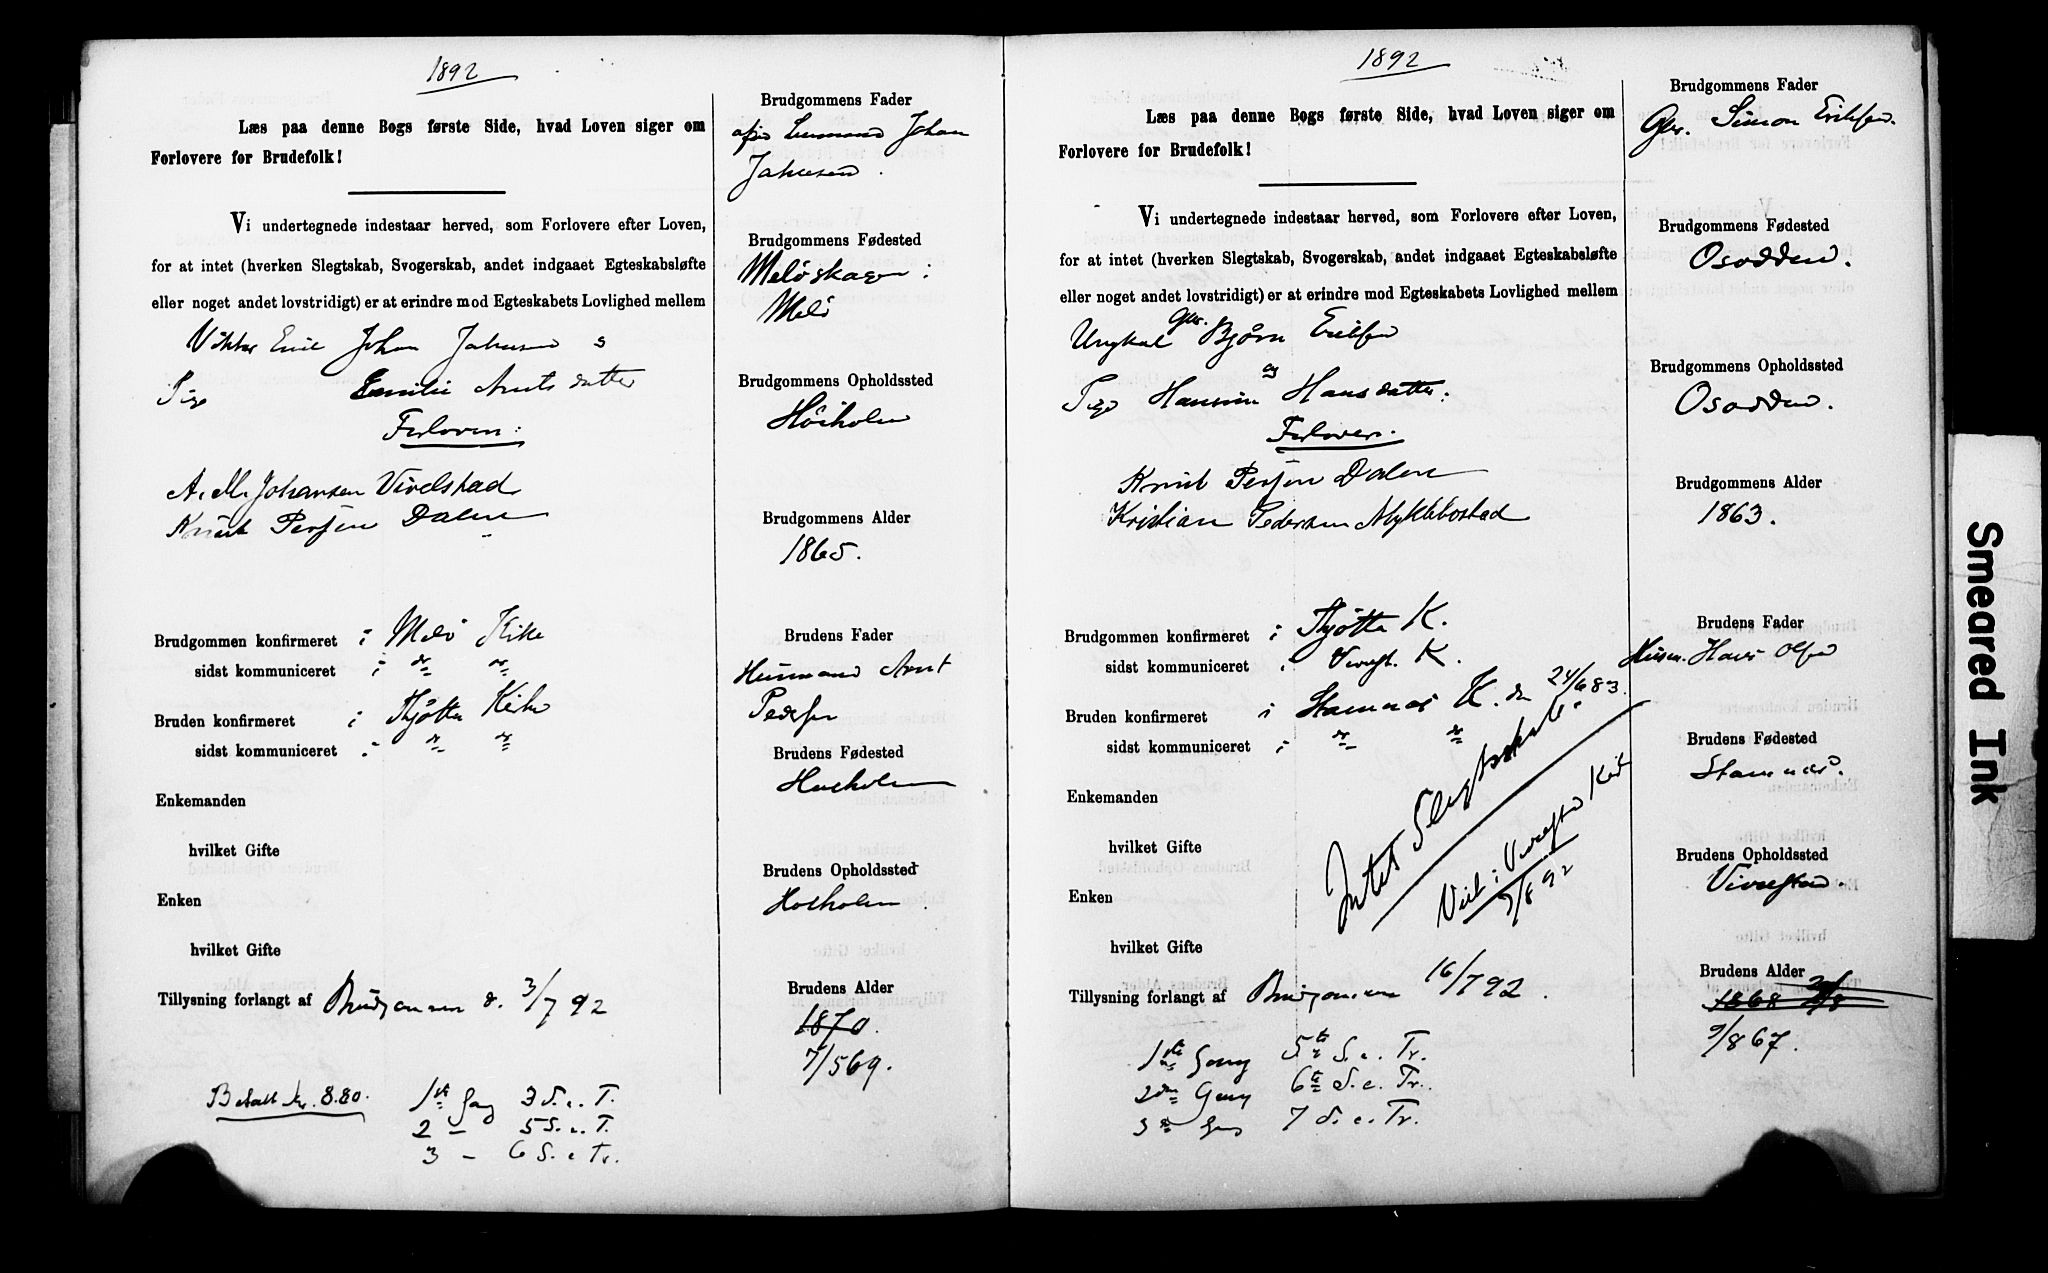 1892
Læs paa denne Bogs første Side, hvad Loven siger om
Forlovere for Brudefolk!
Vi undertegnede indestaar herved, som Forlovere efter Loven,
for at intet (hverken Slegtskab, Svogerskab, andet indgaaet Egteskabsløfte
eller noget andet lovstridigt) er at erindre mod Egteskabets Lovlighed mellem
Emil Johan
Pige Emilie Arnts datter
Forlovere:
A. M. Johansen Vivelstad
Knut Persen Dalen
Brudgommen konfirmeret i Melø Kirke
sidst kommuniceret i do do
Bruden konfirmeret i Thjøtta Kirke
sidst kommuniceret i do do
Enkemanden
hvilket Gifte
Enken
hvilket Gifte
Tillysning forlangt af Brudgommen d. 3/7 92
Betalt kr. 8.80.
1ste Gang 3 S. e. T.
2 – 5 S. e. T.
3 – 6 S. e Tr.
Brudgommens Fader
Johan
Brudgommens Fødested
Meløskagen:
Melø
Brudgommens Opholdssted
Høiholm
Brudgommens Alder
1865.
Brudens Fader
Husmand Arnt
Pedersen
Brudens Fødested
Brudens Opholdssted
Brudens Alder
1870.
7/5 69.
1892
Læs paa denne Bogs første Side, hvad Loven siger om
Forlovere for Brudefolk!
Vi undertegnede indestaar herved, som Forlovere efter Loven,
for at intet (hverken Slegtskab, Svogerskab, andet indgaaet Egteskabsløfte
eller noget andet lovstridigt) er at erindre mod Egteskabets Lovlighed mellem
Ungkal Gbr. Bjørn Eriksen
og
Pige Hansdatter.
Forlovere.
Knut Persen Dalen
Kristian Pedersen Myklebostad
Brudgommen konfirmeret i Thjøtta K.
sidst kommuniceret i K.
Bruden konfirmeret i Stamnæs K. den 24/6 83.
sidst kommuniceret i do do
Enkemanden
hvilket Gifte
Enken
hvilket Gifte
Intet Slegtskab.
Viet i Kirke
9/8 92
Tillysning forlangt af Brudgommen 16/7 92.
1ste Gang 5te S. e. Tr.
2den Gang 6te S. e. Tr.
3de Gang 7 S. e. Tr.
Brudgommens Fader
Gbr. Simon Eriksen.
Brudgommens Fødested
Osodden.
Brudgommens Opholdssted
Osodden.
Brudgommens Alder
1863.
Brudens Fader
Husm. Hans Olsen
Brudens Fødested
Stamnæs.
Brudens Opholdssted
Brudens Alder
1868
9/8 67.
Smeared Ink